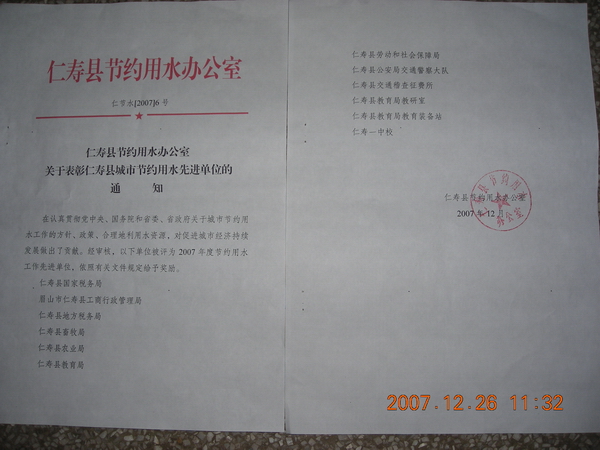 仁寿县节约用水办公室
仁节水[2007]6号
仁寿县节约用水办公室
关于表彰仁寿县城市节约用水先进单位的
通 知
在认真贯彻党中央、国务院和省委、省政府关于城市节约用
水工作的方针、政策、合理地利用水资源,对促进城市经济持续
发展做出了贡献。经审核,以下单位被评为2007年度节约用水
工作先进单位,依照有关文件规定给予奖励。
仁寿县国家税务局
眉山市仁寿县工商行政管理局
仁寿县地方税务局
仁寿县畜牧局
仁寿县农业局
仁寿县教育局
仁寿县劳动和社会保障局
仁寿县公安局交通警察大队
仁寿县交通稽查征费所
仁寿县教育局教研室
仁寿县教育局教育装备站
仁寿一中校
仁寿县节约用水办公室
2007年12月
2007.12.26 11:32